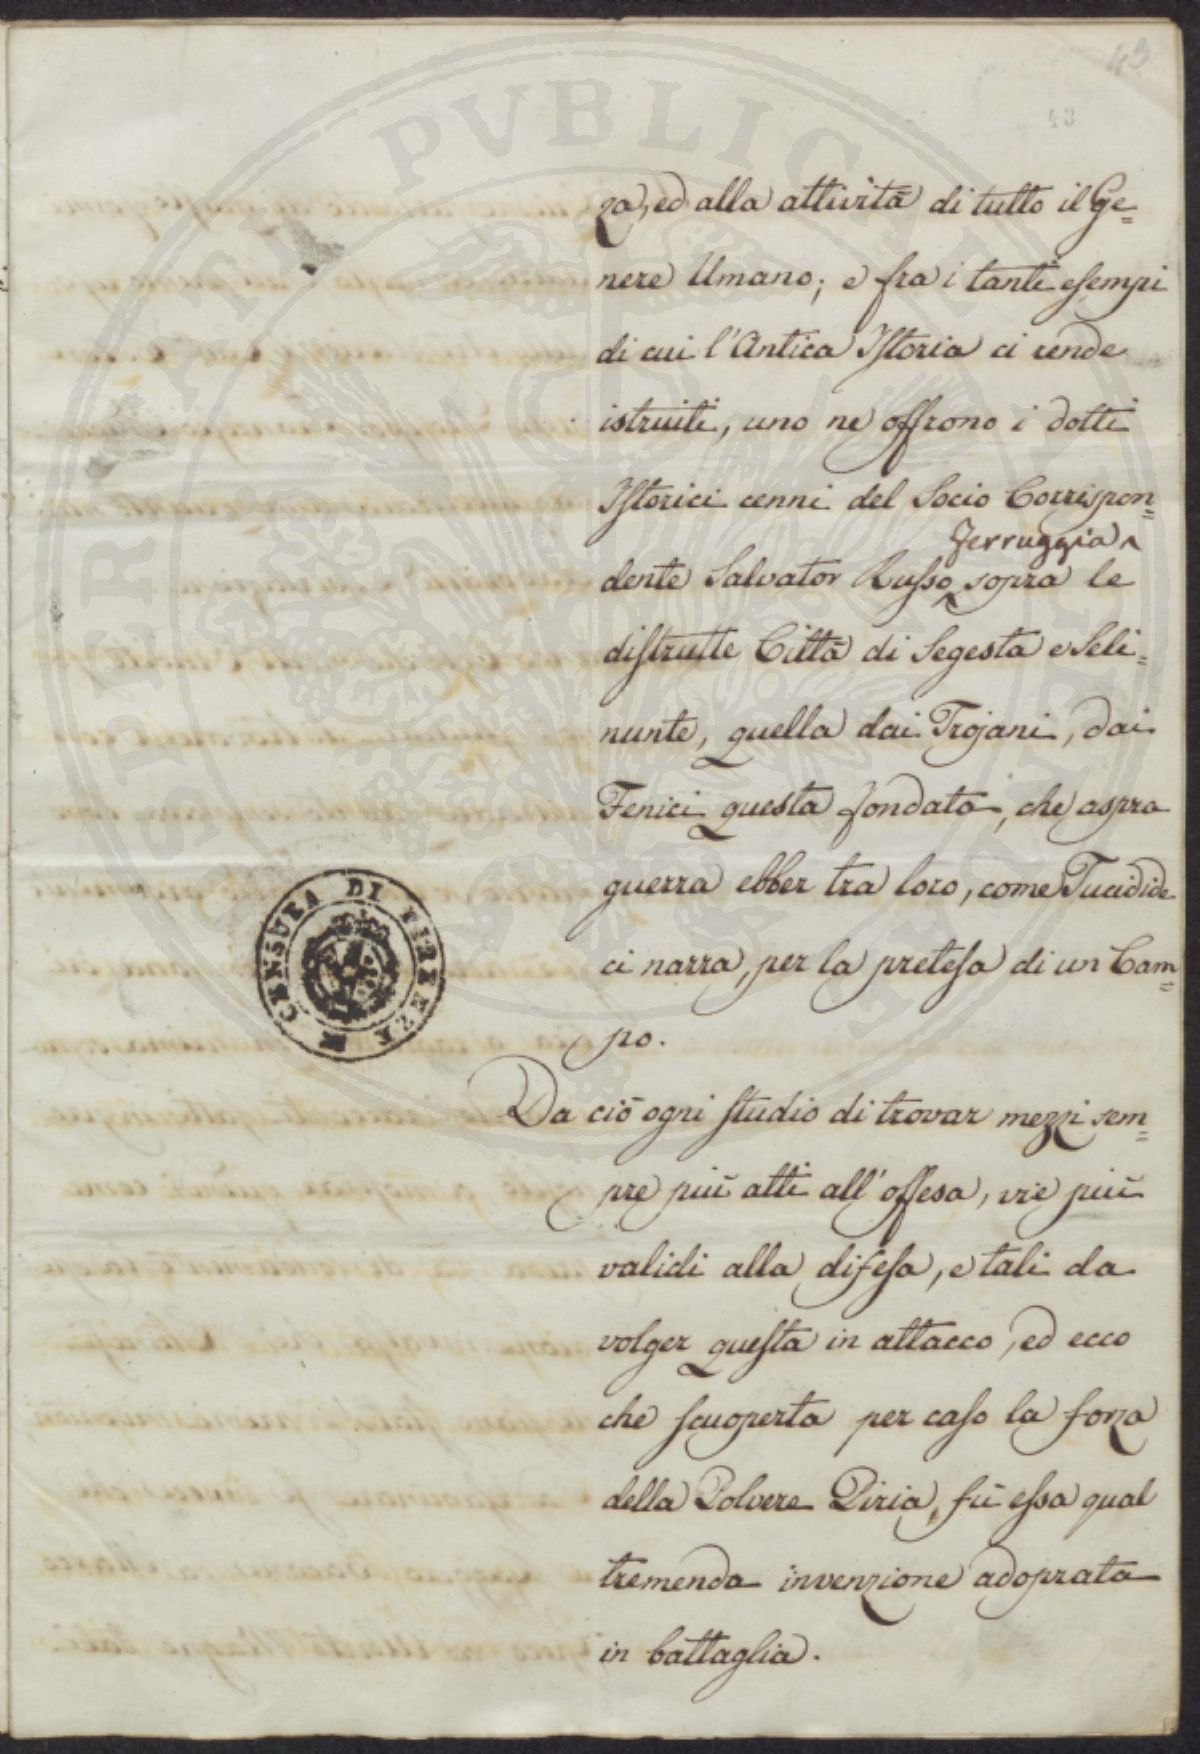 43
43
za, ed alla attività di tutto il Ge=
nere Umano; e fra i tanti esempi
di cui l'Antica Istoria ci rende
istruiti, uno ne offrono i dotti
Istorici cenni del Socio Corrispon=
Ferruggia
dente Salvator Russo sopra le
distrutte Città di Segesta e Seli=
nunte, quella dai Trojani, dai
Fenici questa fondata, che aspra
guerra ebber tra loro, come Tucidide
ci narra, per la pretesa di un Cam=
po.
Da ciò ogni studio di trovar mezzi sem=
pre più atti all'offesa, vie più
validi alla difesa, e tali da
volger questa in attacco, ed ecco
che scuoperta per caso la forza
della Polvere Piria, fù essa qual
tremenda invenzione adoprata
in battaglia.
CENSURA DI FIRENZE
PVBLICI